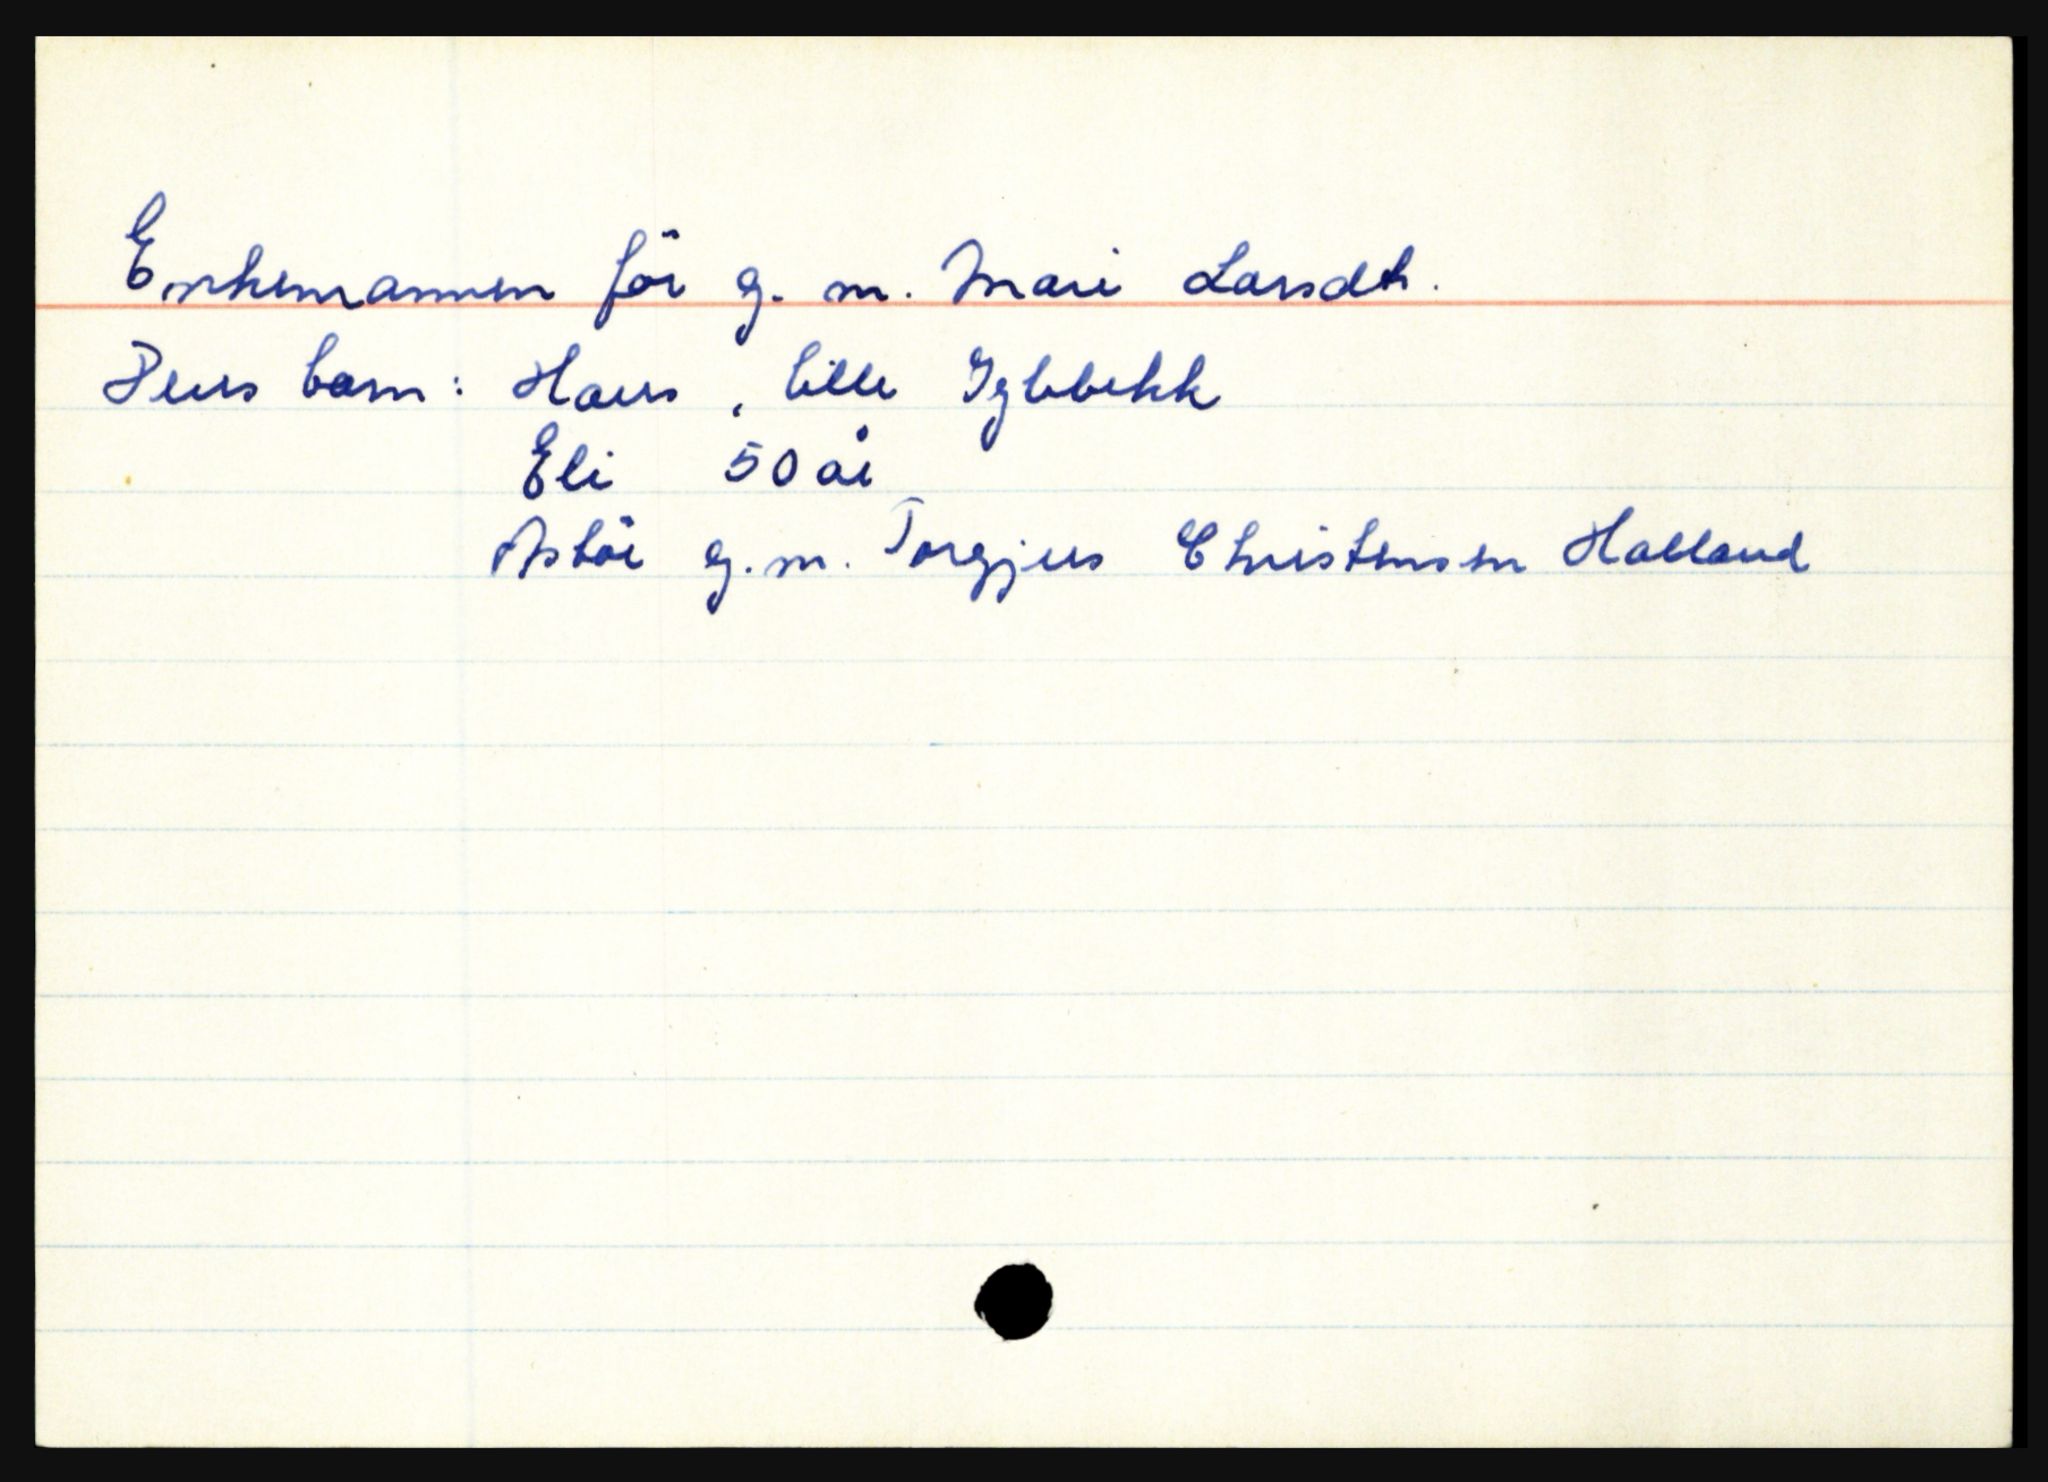 Enkemannen för g. m. Mari Larsdtr.
Deres barn: Hans, lille Iglebekk
Eli 50 år
Astör g.m. Torgjus Christensen Halland